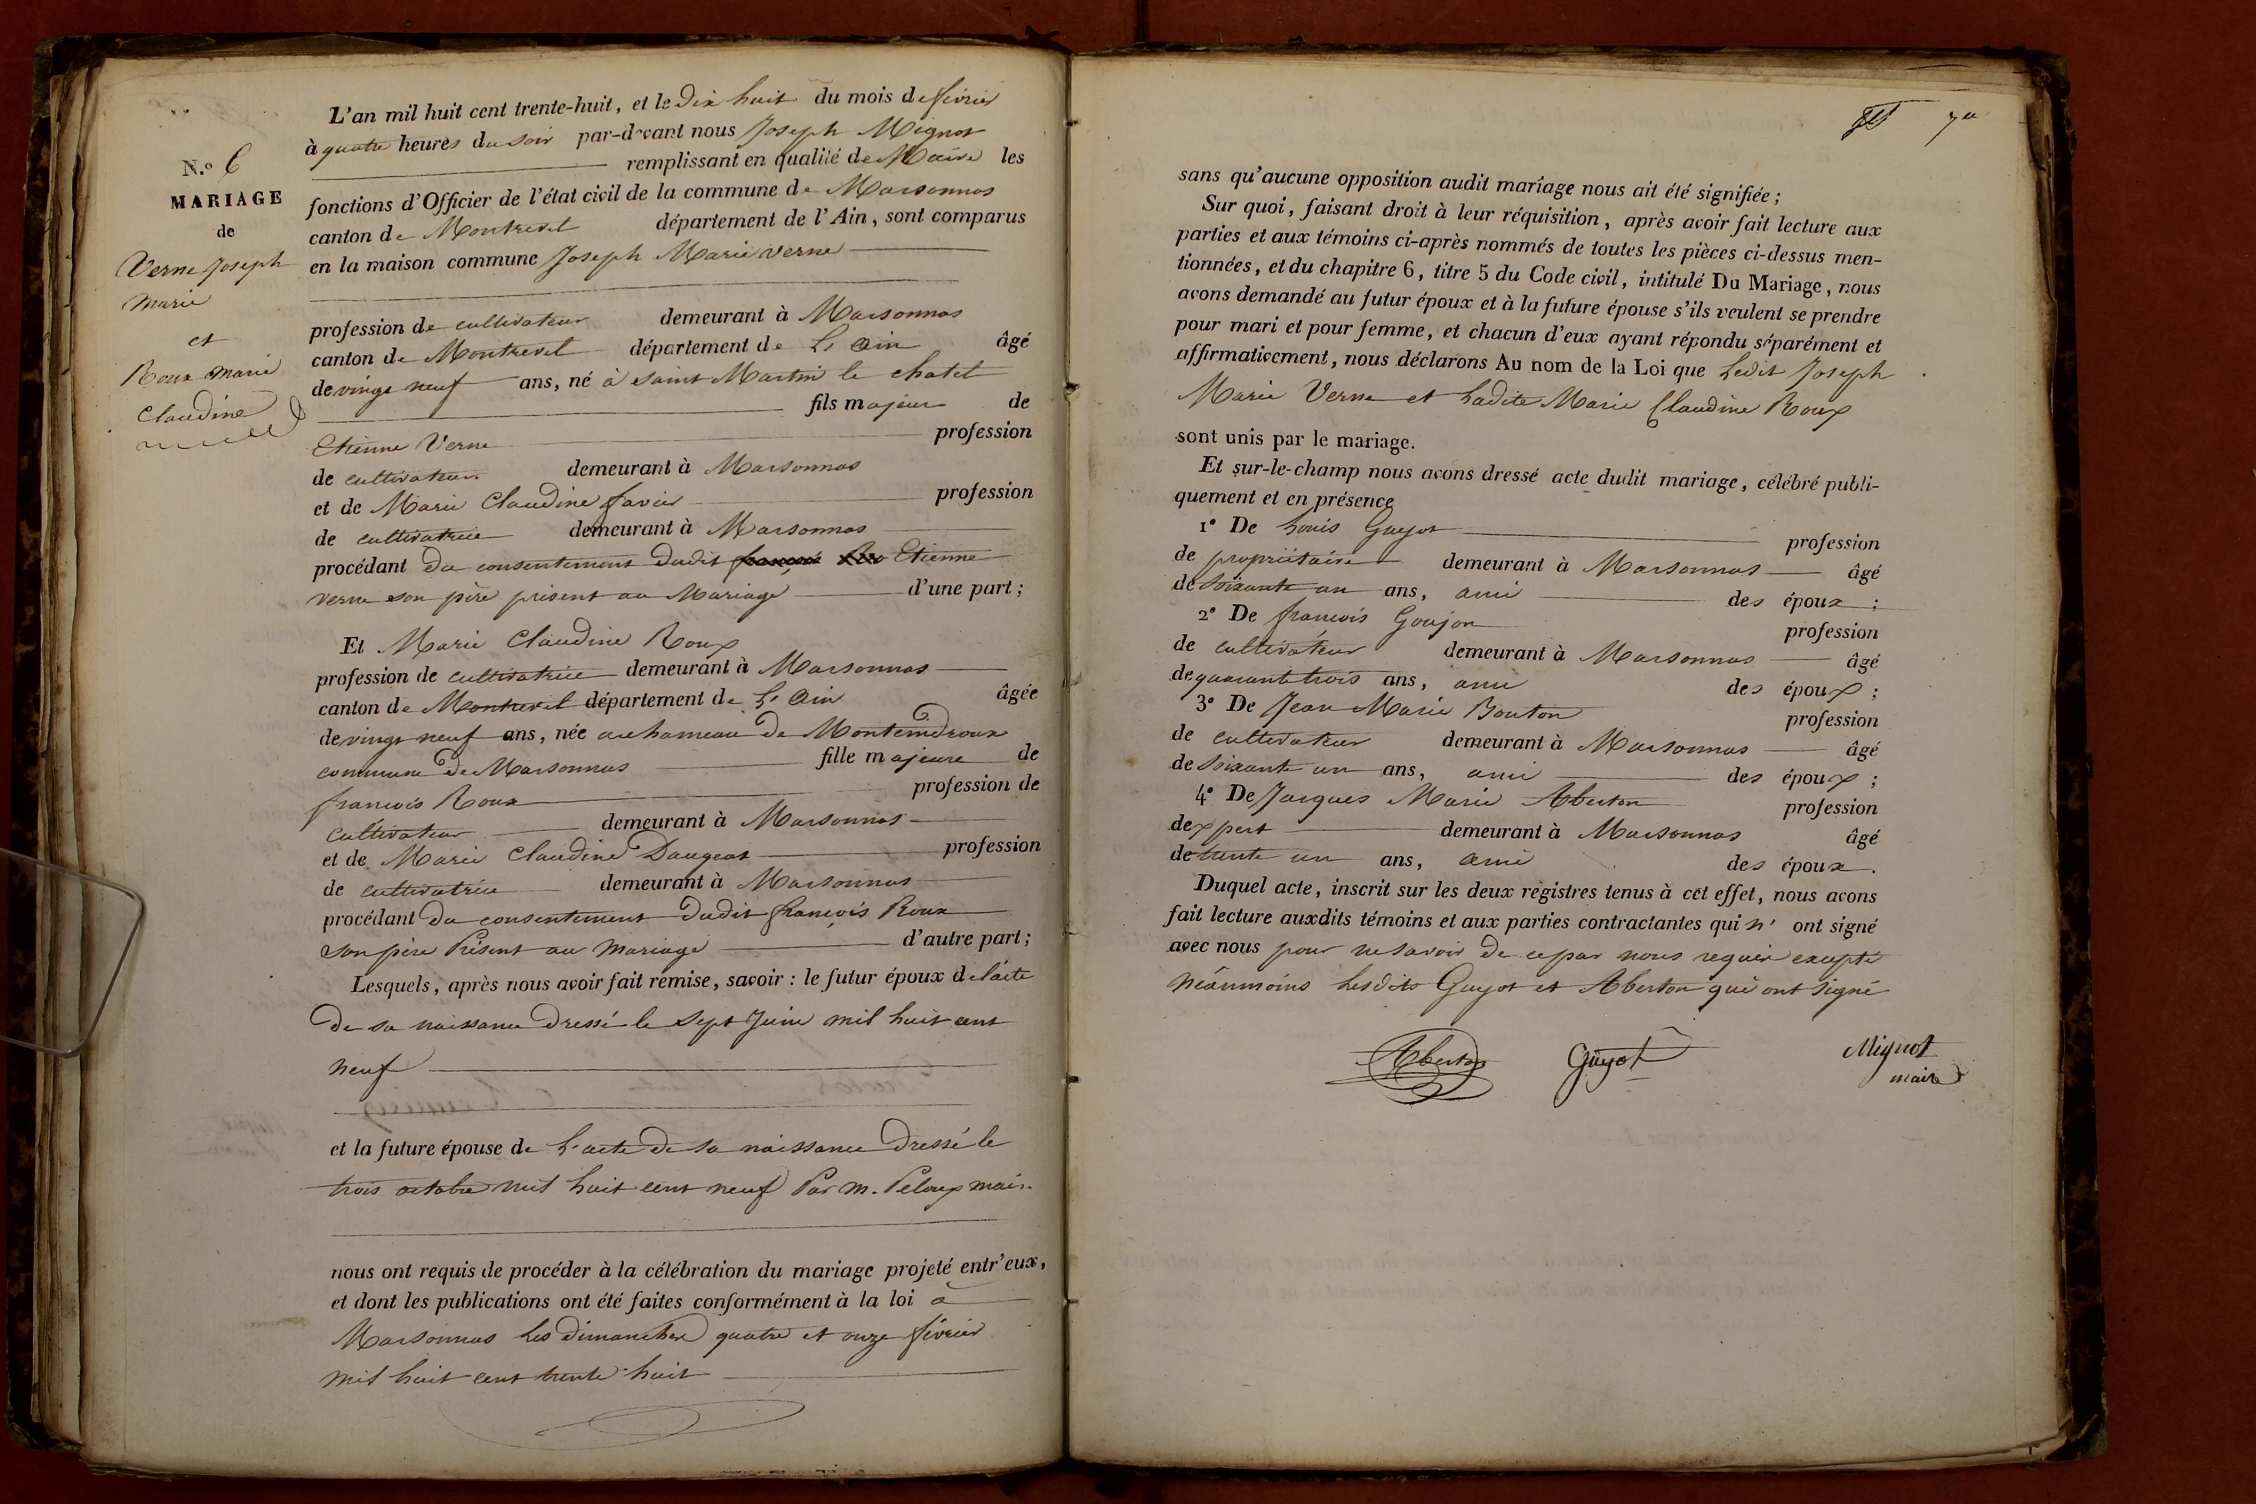 N.º 6
MARIAGE
de
Verne Joseph
marie
et
Roux marie
Claudine
L'an mil huit cent trente-huit, et le Dix huit du mois de février
à quatre heures du soir par-devant nous Joseph Mignot
remplissant en qualité de Maire les
fonctions d'Officier de l'état civil de la commune de Marsonnas
canton de Montrevel département de l'Ain, sont comparus
en la maison commune Joseph Marie Verne
profession de cultivateur demeurant à Marsonnas
canton de Montrevel département de L'Ain âgé
de vingt neuf ans, né à Saint Martin le chatel
fils majeur de
Etienne Verne profession
de cultivateur demeurant à Marsonnas
et de Marie Claudine favier profession
de cultivatrice demeurant à Marsonnas
procédant du consentement dudit Etienne
verne son père présent au Mariage d'une part;
Et Marie Claudine Roux
profession de cultivatrice demeurant à Marsonnas
canton de Montrevel département de L'Ain âgée
de vingt neuf ans, née au hameau de Montemdroux
commune de Marsonnas fille majeure de
françois Roux profession de
cultivateur demeurant à Marsonnas
et de Marie Claudine Daugeat profession
de cultivatrice demeurant à Marsonnas
procédant du consentement dudit françois Roux
son père Présent au mariage d'autre part;
Lesquels, après nous avoir fait remise, savoir: le futur époux de l'acte
de sa naissance dressé le sept Juin mil huit cent
neuf
et la future épouse de L'acte de sa naissance dressé le
trois octobre mil huit cent neuf Par m. Peloux maire
nous ont requis de procéder à la célébration du mariage projeté entr'eux,
et dont les publications ont été faites conformément à la loi à
Marsonnas les dimanches quatre et onze février
mil huit cent trente huit
7
sans qu'aucune opposition audit mariage nous ait été signifiée;
Sur quoi, faisant droit à leur réquisition, après avoir fait lecture aux
parties et aux témoins ci-après nommés de toutes les pièces ci-dessus men-
tionnées, et du chapitre 6, titre 5 du Code civil, intitulé Du Mariage, nous
avons demandé au futur époux et à la future épouse s'ils veulent se prendre
pour mari et pour femme, et chacun d'eux ayant répondu séparément et
affirmativement, nous déclarons Au nom de la Loi que Ledit Joseph
Marie Verne et Ladite Marie Claudine Roux
sont unis par le mariage.
Et sur-le-champ nous avons dressé acte dudit mariage, célébré publi-
quement et en présence
1º De Louis Guyot profession
de propriétaire demeurant à Marsonnas âgé
de soixante un ans, ami des époux;
2º De françois Goujon profession
de cultivateur demeurant à Marsonnas âgé
de quarante trois ans, ami des époux;
3º De Jean Marie Bouton profession
de cultivateur demeurant à Marsonnas âgé
de soixante un ans, ami des époux;
4º De Jacques Marie Aberton profession
d'expert demeurant à Marsonnas âgé
de trente un ans, ami des époux.
Duquel acte, inscrit sur les deux registres tenus à cet effet, nous avons
fait lecture auxdits témoins et aux parties contractantes qui n' ont signé
avec nous pour ne savoir de ce par nous requis excepté
néanmoins Lesdits Guyot et Aberton qui ont signé
Aberton Guyot Mignot
maire